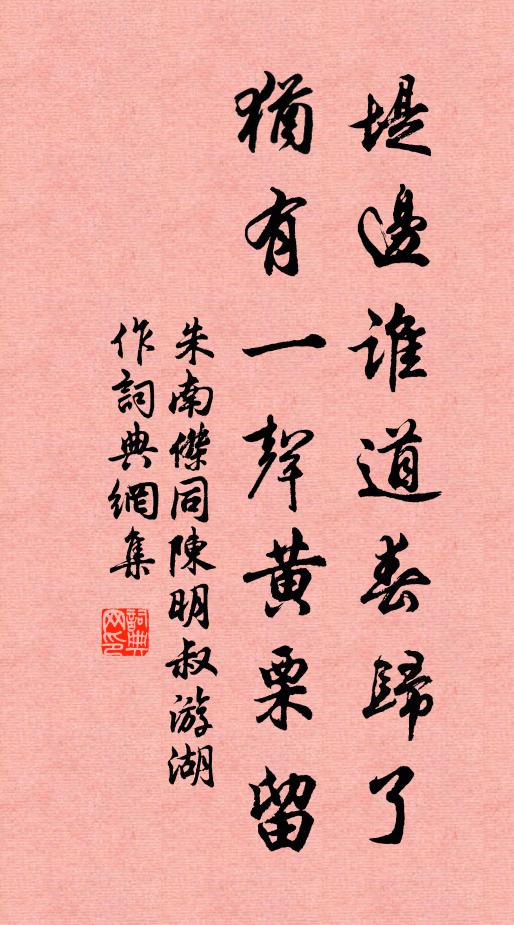 堤邊誰道春歸了
猶有一聲黃栗留
朱南傑同陳明叔游湖
作詞典網集
詞典
网印